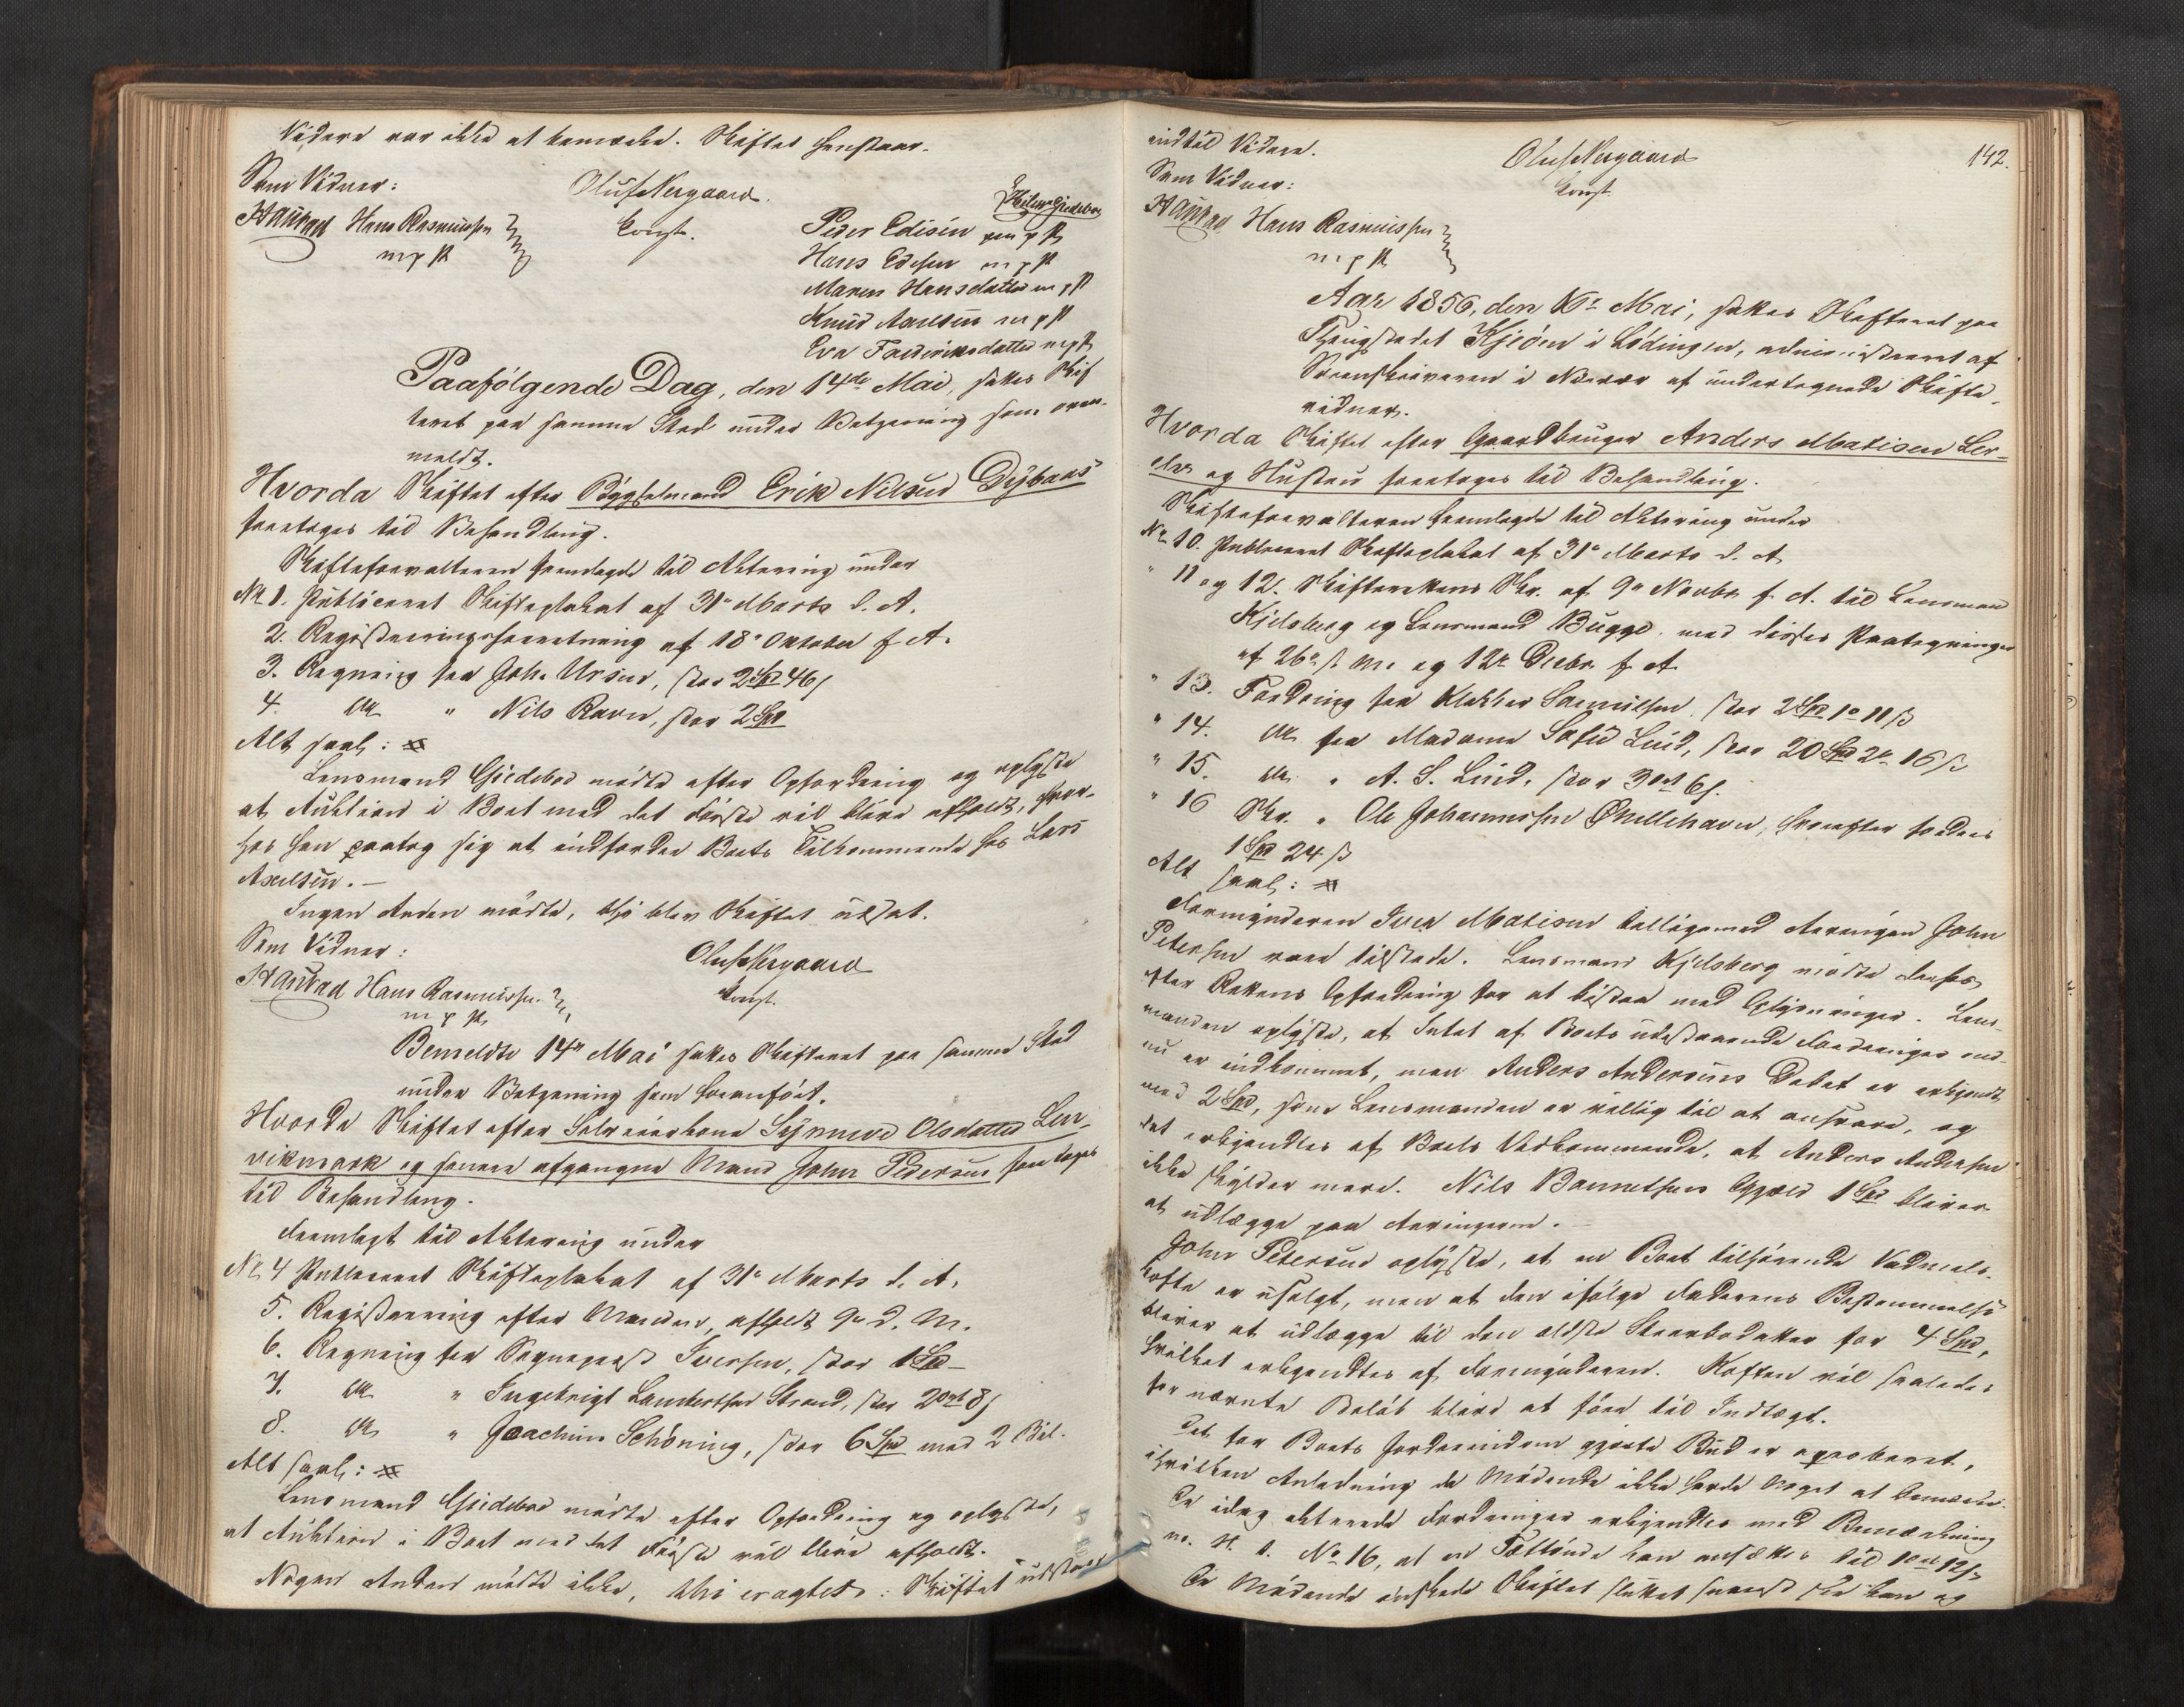 Videre var ikke at bemærke. Skiftet henstaar.
Som Vidner:
Hans Rasmussen
m p P
Oluf Nergaard
Const.
Peder Edisen m p P
Hans Edisen m p P
Maren Hansdatter m p P
Knud Axelsen m p P
Eva Frederiksdatter m p P
Paafølgende Dag, den 14de Mai, sattes Skif
teret paa samme Sted under Betjening som oven-
meldt.
Hvorda Skiftet efter Bygselmand Erik Nilsen Dybaas
foretoges til Behandling.
Skifteforvalteren fremlagde til Aktering under
No 1. Publiceret Skifteplakat af 31te Marts d. A.
2. Registreringsforretning af 18de Oktober f. A.
3. Regning fra Joh. Ursin, stor 2 Spd 46 s
4. do " Nils Ravn, stor 2 Spd
Alt saal:
Lensmand Giedebo mødte efter Opfordring og oplyste
at Auktion i Boet med det Første vil blive afholdt, hvor-
hos han paatog sig at indfordre Boets Tilkommende hos Lars
Axelsen. —
Ingen Anden mødte, thi blev Skiftet udsat.
Som Vidner:
Hans Rasmussen
m p P
Oluf Nergaard
Const.
Bemeldte 14de Mai sattes Skifteret paa samme Sted
under Betjening som foranført.
Hvorda Skiftet efter Selveierkone Synneve Olsdatter Ler-
vikmark og hennes afgangne Mand John Pedersen foretoges
til Behandling.
Fremlagt til Aktering under
No 4 Publiceret Skifteplakat af 31te Marts d. A.
5. Registrering efter Manden, afholdt 9de d. M.
6. Regning fra Sogneprest Iversen, stor 1 Spd
7. do " Ingebrigt Lambertsen Strand, stor 2 ort 8 s
8. do " Joachim Schøning, stor 6 Spd med 2 Bil.
Alt saal:
Lensmand Giedebo mødte efter Opfordring og oplyste,
at Auktion i Boet med det Første vil blive afholdt.
Nogen Anden mødte ikke, thi eragtet: Skiftet udstaar
indtil Videre.
Oluf Nergaard
Const.
142.
Som Vidner:
Hans Rasmussen
m p P
Aar 1856, den 16de Mai, sattes Skifteret paa
Thingstedet Kjeøen i Lødingen, administreret af
Sorenskriveren i Nærvær af undertegnede Skifte-
vidner.
Hvorda Skiftet efter Gaardbruger Anders Matisen Ler-
og Hustru foretoges til Behandling.
Skifteforvalteren fremlagde til Aktering under
No 10. Publiceret Skifteplakat af 31te Marts d. A.
" 11 og 12. Skifterettens Skr. af 9de Novbr f. A. til Lensmand
Kjelsberg og Lensmand Bugge, med disses Paategninger
af 26de s. M. og 12te Decbr f. A.
" 13. Fordring fra Klokker Samuelsen, stor 2 Spd 1 o 11 s
" 14. do fra Madame Sofie Lind, stor 20 Spd 2 o 16 s
" 15. do " A. S. Lind, stor 3 ort 6 s.
" 16 Skr. " Ole Johannessen hvorefter fordres
1 Spd 24 s
Alt saal:
Formynderen Iver Matisen tilligemed Arvingen John
Petersen vare tilstede. Lensmand Kjelsberg mødte derhos
efter Rettens Opfordring for at bistaa med Oplysninger. Lens-
manden oplyste, at Intet af Boets udestaaende Fordringer end-
nu er indkommet, men Anders Andersens Debet er erkjendt
med 2 Spd, som Lensmanden er villig til at ansvare, og
det erkjendtes af Boets Vedkommende, at Anders Andersen
ikke skylder mere. Nils Gjæld 1 Spd bliver
at udlægge paa Arvingerne.
John Petersen oplyste, at en Boet tilhørende Vadmels-
kofte er usolgt, men at den ifølge Faderens Bestemmelse
bliver at udlægge til den ældste for 4 Spd,
hvilket erkjendtes af Formynderen. Koften vil saaledes
for nævnte Beløb blive at føre til Indtægt.
Det for Boets Jordeiendom gjorte Bud er approberet,
i hvilken Anledning de Mødende ikke havde Noget at bemærke.
De idag akterede Fordringer erkjendtes med Bemærkning
m. H. t. No 16, at en kan ansættes til 1 ort 12 s
De Mødende ønskede Skiftet sluttet snarest skee kan og